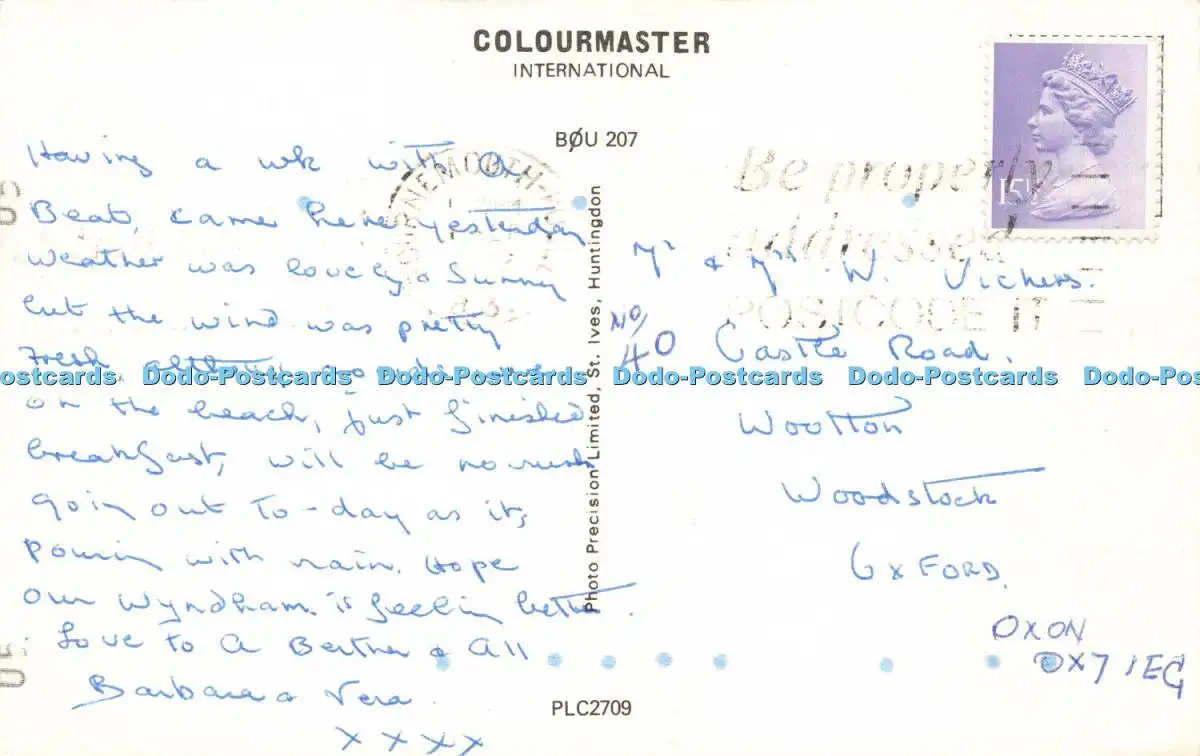 COLOURMASTER
INTERNATIONAL
BØU 207
15½
Be properly
addressed
POSTCODE IT
Having a wk with
Beat, came here yesterday
weather was lovely & Sunny
but the wind was pretty
fresh, although
on the beach, just finished
breakfast, will be no rush
going out To-day as its
pouring with rain. Hope
our Wyndham. is feeling better.
Love to A Bertha & All
Barbara & Vera.
x x x x
Photo Precision Limited, St. Ives, Huntingdon
Mr & Mrs W. Vickers.
NO/
40 Castle Road.
Wootton
Woodstock
OXFORD.
OXON
OX7 1EG
PLC2709
ostcards Dodo-Postcards Dodo-Postcards Dodo-Postcards Dodo-Postcards Dodo-P